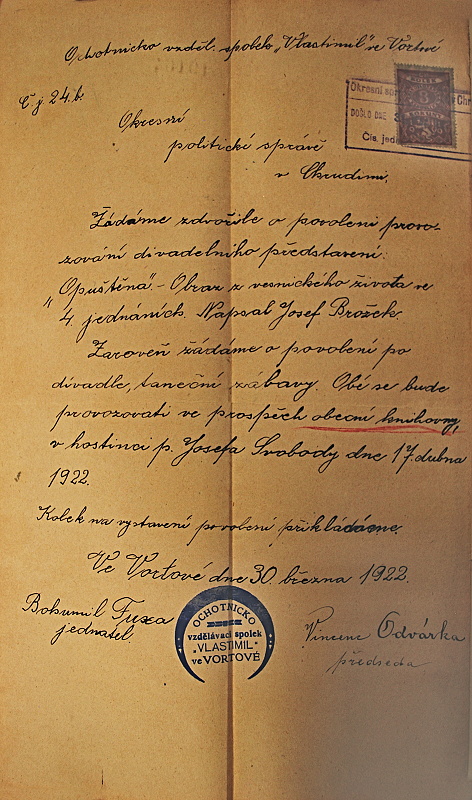 Ochotnicko vzděl. spolek „Vlastimil" ve Vortové
Č. j. 24.b.
KOLEK
8
KORUNY
Okresní Chr
DOŠLO DNE
Čís. jed
Okresní
politické správě
v Chrudimi.
Žádáme zdvořile o povolení provo-
zování divadelního představení:
„Opuštěna." - Obraz z vesnického života ve
4. jednáních. Napsal Josef Brožek.
Zároveň žádáme o povolení po
divadle, taneční zábavy. Obé se bude
provozovati ve prospěch obecní knihovny,
v hostinci p. Josefa Svobody dne 17. dubna
1922.
Kolek na vystavení povolení přikládáme.
Ve Vortové dne 30. března 1922.
Bohumil Fuxa
jednatel
OCHOTNICKO
vzdělávací spolek
„VLASTIMIL"
ve VORTOVÉ
Vincenc Odvárka
předseda